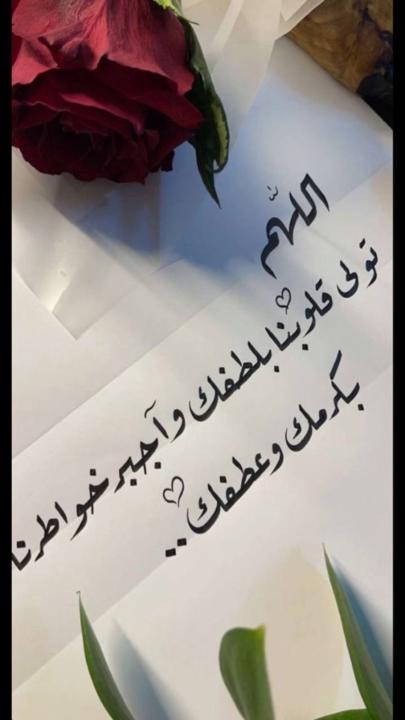 اللهم
تولى قلوبنا بلطفك وآجبر خواطرنا
بكرمك وعطفك..